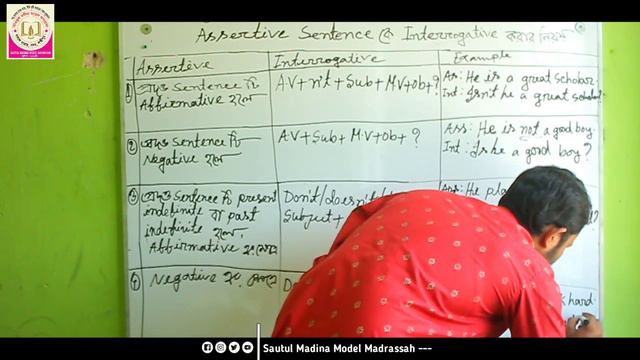 Assertive Sentence কে Interrogative করার নিয়ম
Assertive
Interrogative
Example
① প্রদত্ত Sentence টি Affirmative হলে
A.V + n't + Sub + M.V + ob + ?
As: He is a great scholar.
Int: Isn't he a great scholar?
② প্রদত্ত Sentence টি Negative হলে
A.V + Sub + M.V + ob + ?
Ass: He is not a good boy.
Int: Is he a good boy?
③ প্রদত্ত Sentence টি present
indefinite বা past
indefinite হলে
Affirmative
Don't/doesn't/
Subject +
Ass: He
?
④ Negative
hard.
Sautul Madina Model Madrassah ---